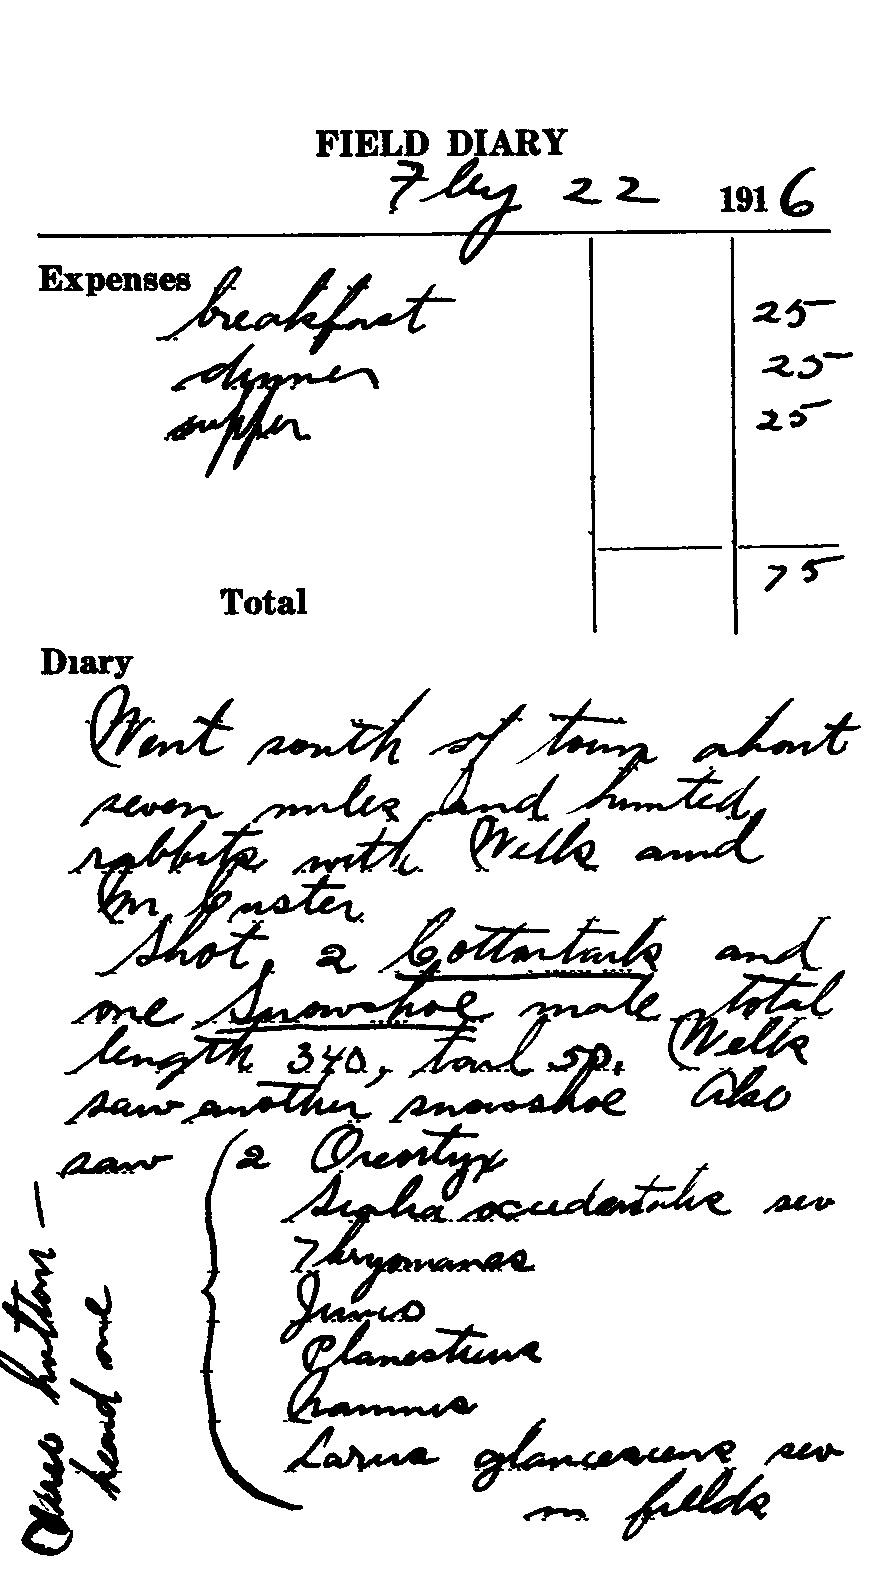 FIELD DIARY
Feby 22 1916
Expenses
breakfast 25
dinner 25
supper 25
75
Total
Diary
Went south of town about
seven miles and hunted
rabbits with Wells and
Mr Custer
Shot 2 Cottontails and
one Snowshoe male total
length 340, tail 50. Wells
saw another snowshoe Also
saw 2 Oreortyx
Sialia occidentalis sev
Thryomanes
Junco
Planesticus
Larus glaucescens sev
in fields
Vireo huttoni —
heard one